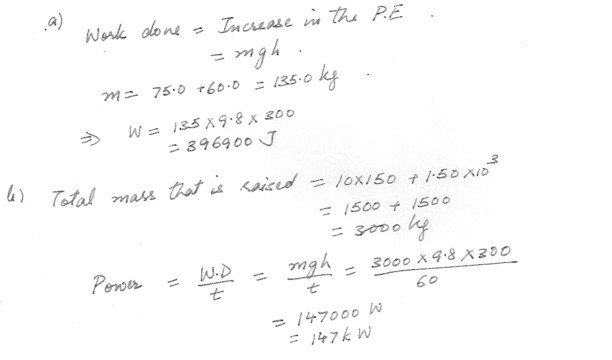 a) Work done = Increase in the P.E.
= mgh.
m = 75.0 + 60.0 = 135.0 kg.
⇒ W = 135 × 9.8 × 300
= 396900 J
b) Total mass that is raised = 10×150 + 1.50 × 10³
= 1500 + 1500
= 3000 kg
Power = W.D / t = mgh / t = 3000 × 9.8 × 300 / 60
= 147000 W
= 147 kW